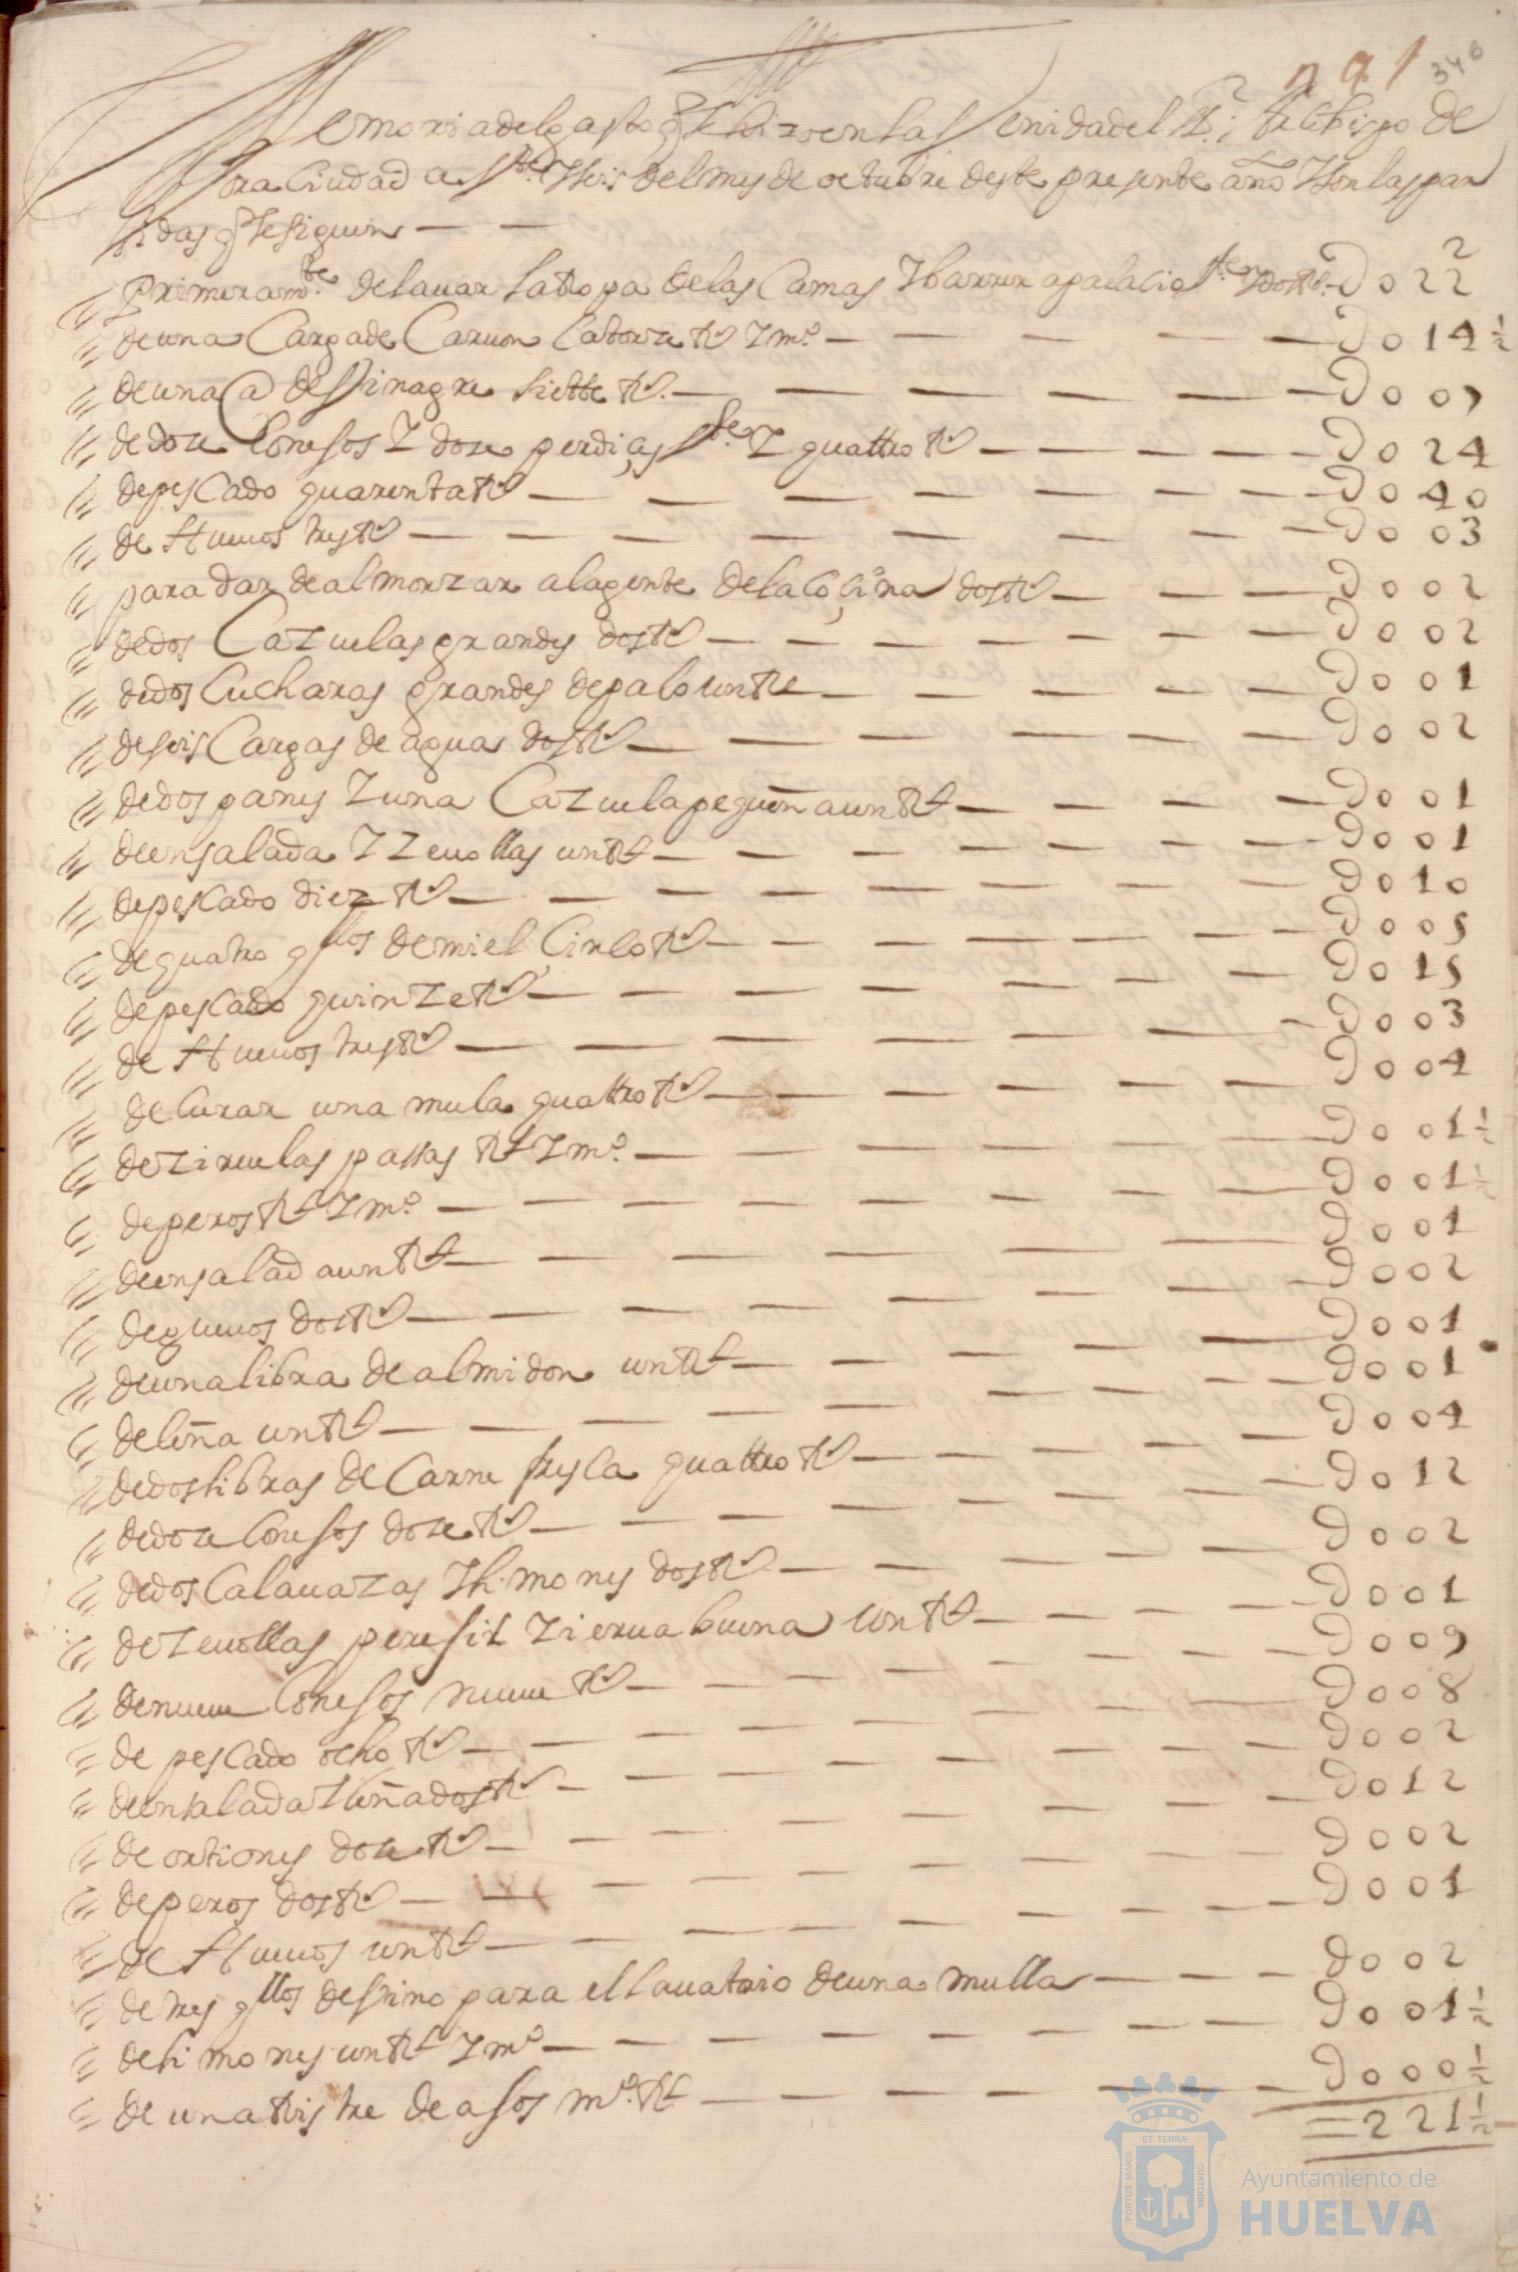 n 91 346
Memoria del gasto q̃ se hizo en la Venida del Sr. Arsobispo de
ciudad a Vte. y seis del mes de octubre deste presente año y son las par
tidas q̃ se siguen
Primeramte. de lauar la Ropa de las Camas y barrer a palacio Vte y dos Rs. D022
de una Carga de Caruon Catorze Rs y mo. D014½
de una @ de Vinagre siette Rs. D007
de doze Conejos y doze perdiçes Vte y quattro Rs D024
de pescado quarenta Rs D040
de Hueuos tres Rs D003
para dar de almorzar a la gente de la Coçina dos Rs D002
de dos Cazuelas grandes dos Rs D002
de dos Cucharas grandes de palo un Rl D001
de seis Cargas de agua dos Rs D002
de dos panes y una Cazuela pequeña un Rl D001
de ensalada y zeuollas un Rl D001
de pescado diez Rs D010
de quatro qllos de miel Cinco Rs D005
de pescado quinze Rs D015
de Hueuos tres Rs D003
de Curar una mula quattro Rs D004
de ziruelas passas Rl y mo. D001½
de peros Rl y mo. D001½
de ensalada un Rl D001
de gueuos dos Rs D002
de una libra de almidon un Rl D001
de leña un Rl D001
de dos libras de Carne fresca quattro Rs D004
de doze Conejos doze Rs D012
de dos Calauazas y limones dos Rs D002
de zeuollas peresil y ierua buena un Rl D001
de nueue Conejos nueue Rs D009
de pescado ocho Rs D008
de ensalada y leña dos Rs D002
de ortiones doze Rs D012
de peros dos Rs D002
de Hueuos un Rl D001
de tres qllos de Vino para el lauatorio de una mulla D002
de limones un Rl y mo D001½
de una Ristre de ajos mo. Rl D000½
=221½
PORTUS MARIS ET TERRÆ CUSTODIA
Ayuntamiento de
HUELVA